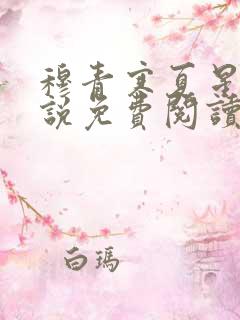 穆青寒夏星
説免費閱讀
白瑪